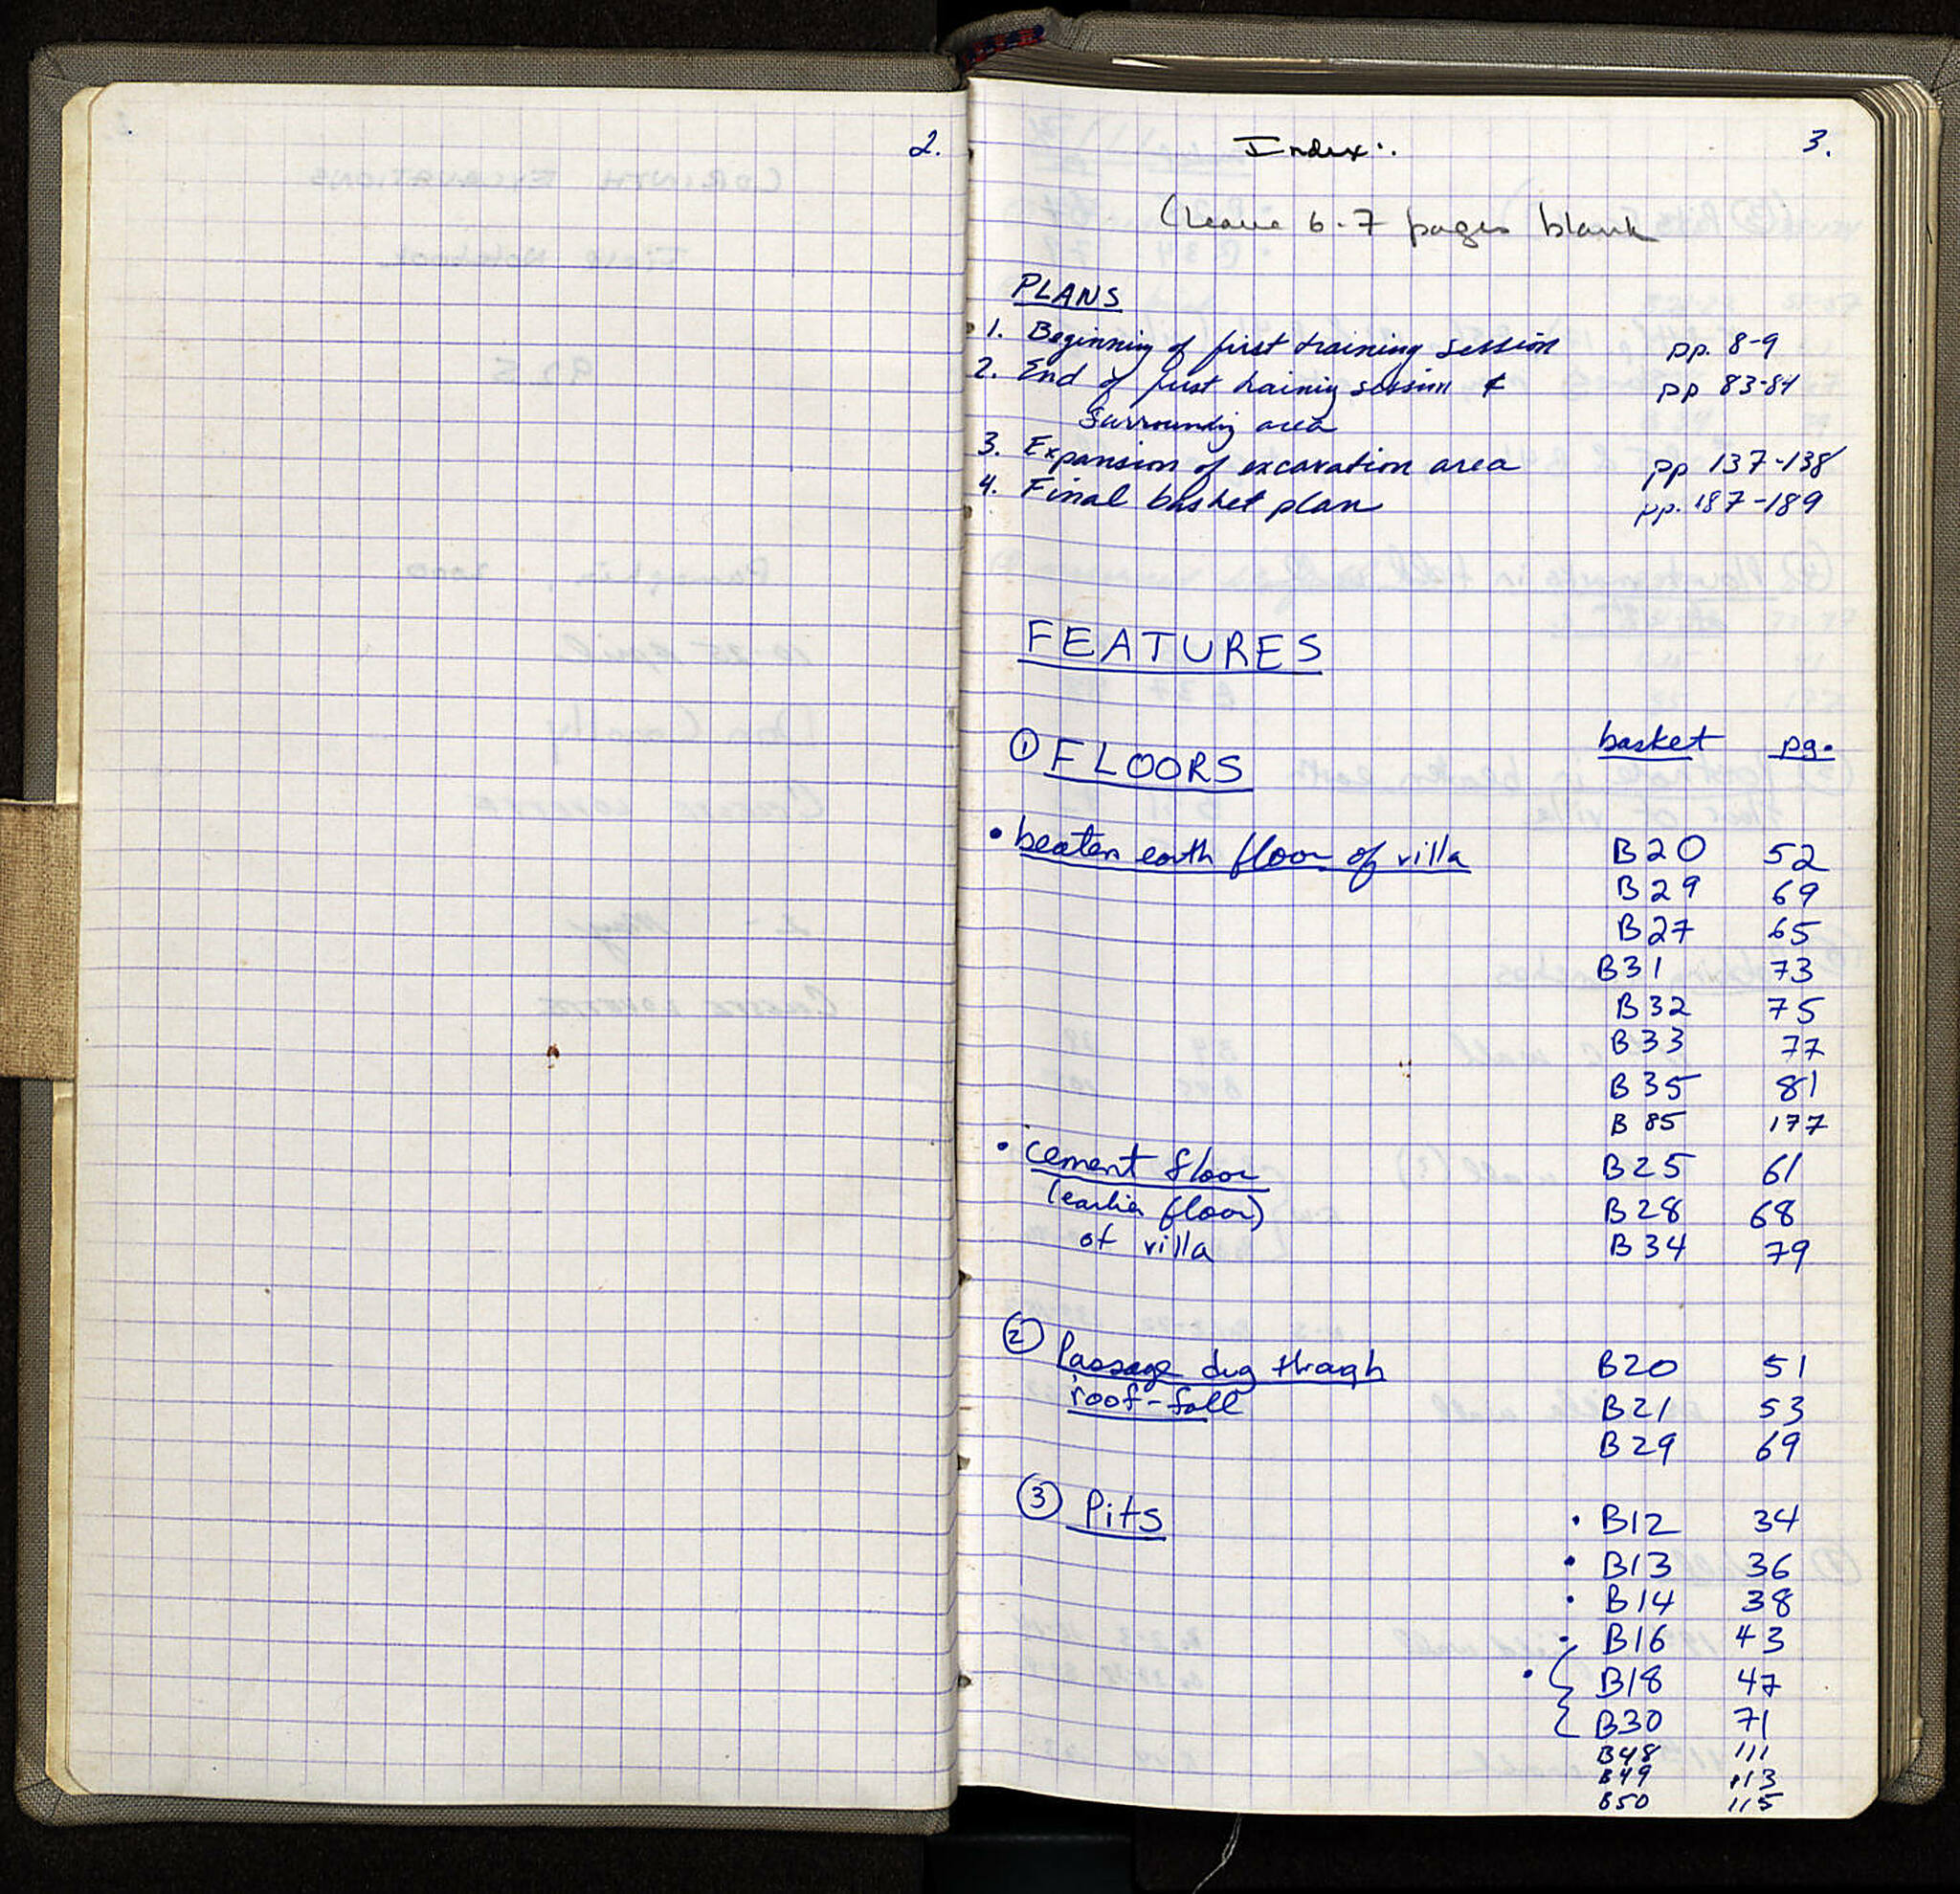 2.
Index:.
3.
(Leave 6-7 pages blank
PLANS
1. Beginning of first training session pp. 8-9
2. End of first training session & pp 83-84
surrounding area
3. Expansion of excavation area pp 137-138
4. Final basket plan pp. 187-189
FEATURES
basket pg.
① FLOORS
• beaten earth floor of villa B20 52
B29 69
B27 65
B31 73
B32 75
B33 77
B35 81
B 85 177
• cement floor B25 61
(earlier floor) B28 68
of villa B34 79
② Passage dug through B20 51
roof-fall B21 53
B29 69
③ Pits • B12 34
• B13 36
• B14 38
• B16 43
• { B18 47
B30 71
B48 111
B49 113
B50 115